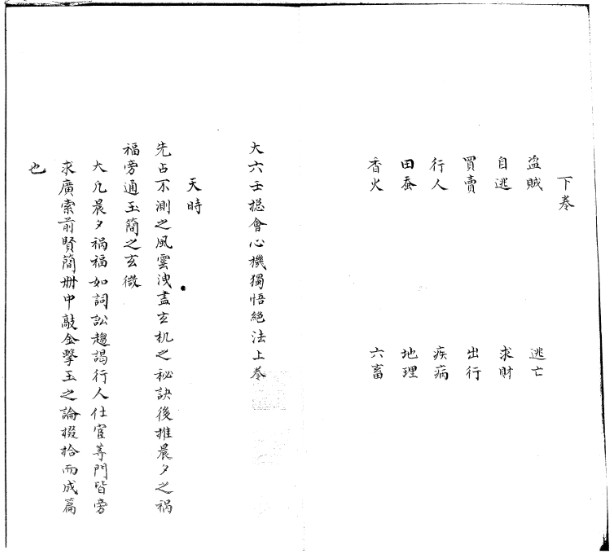 下卷
盜賊 逃亡
自逃 求財
買賣 出行
行人 疾病
田蚕 地理
香火 六畜
大六壬摠會心機獨悟絕法上卷
天時
先占不測之風雲洩盡玄机之秘訣後推晨夕之禍
福旁通玉簡之玄微
大凡晨夕禍福如詞訟趨謁行人仕宦等門皆旁
求廣索前賢簡册中敲金擊玉之論掇拾而成篇
也